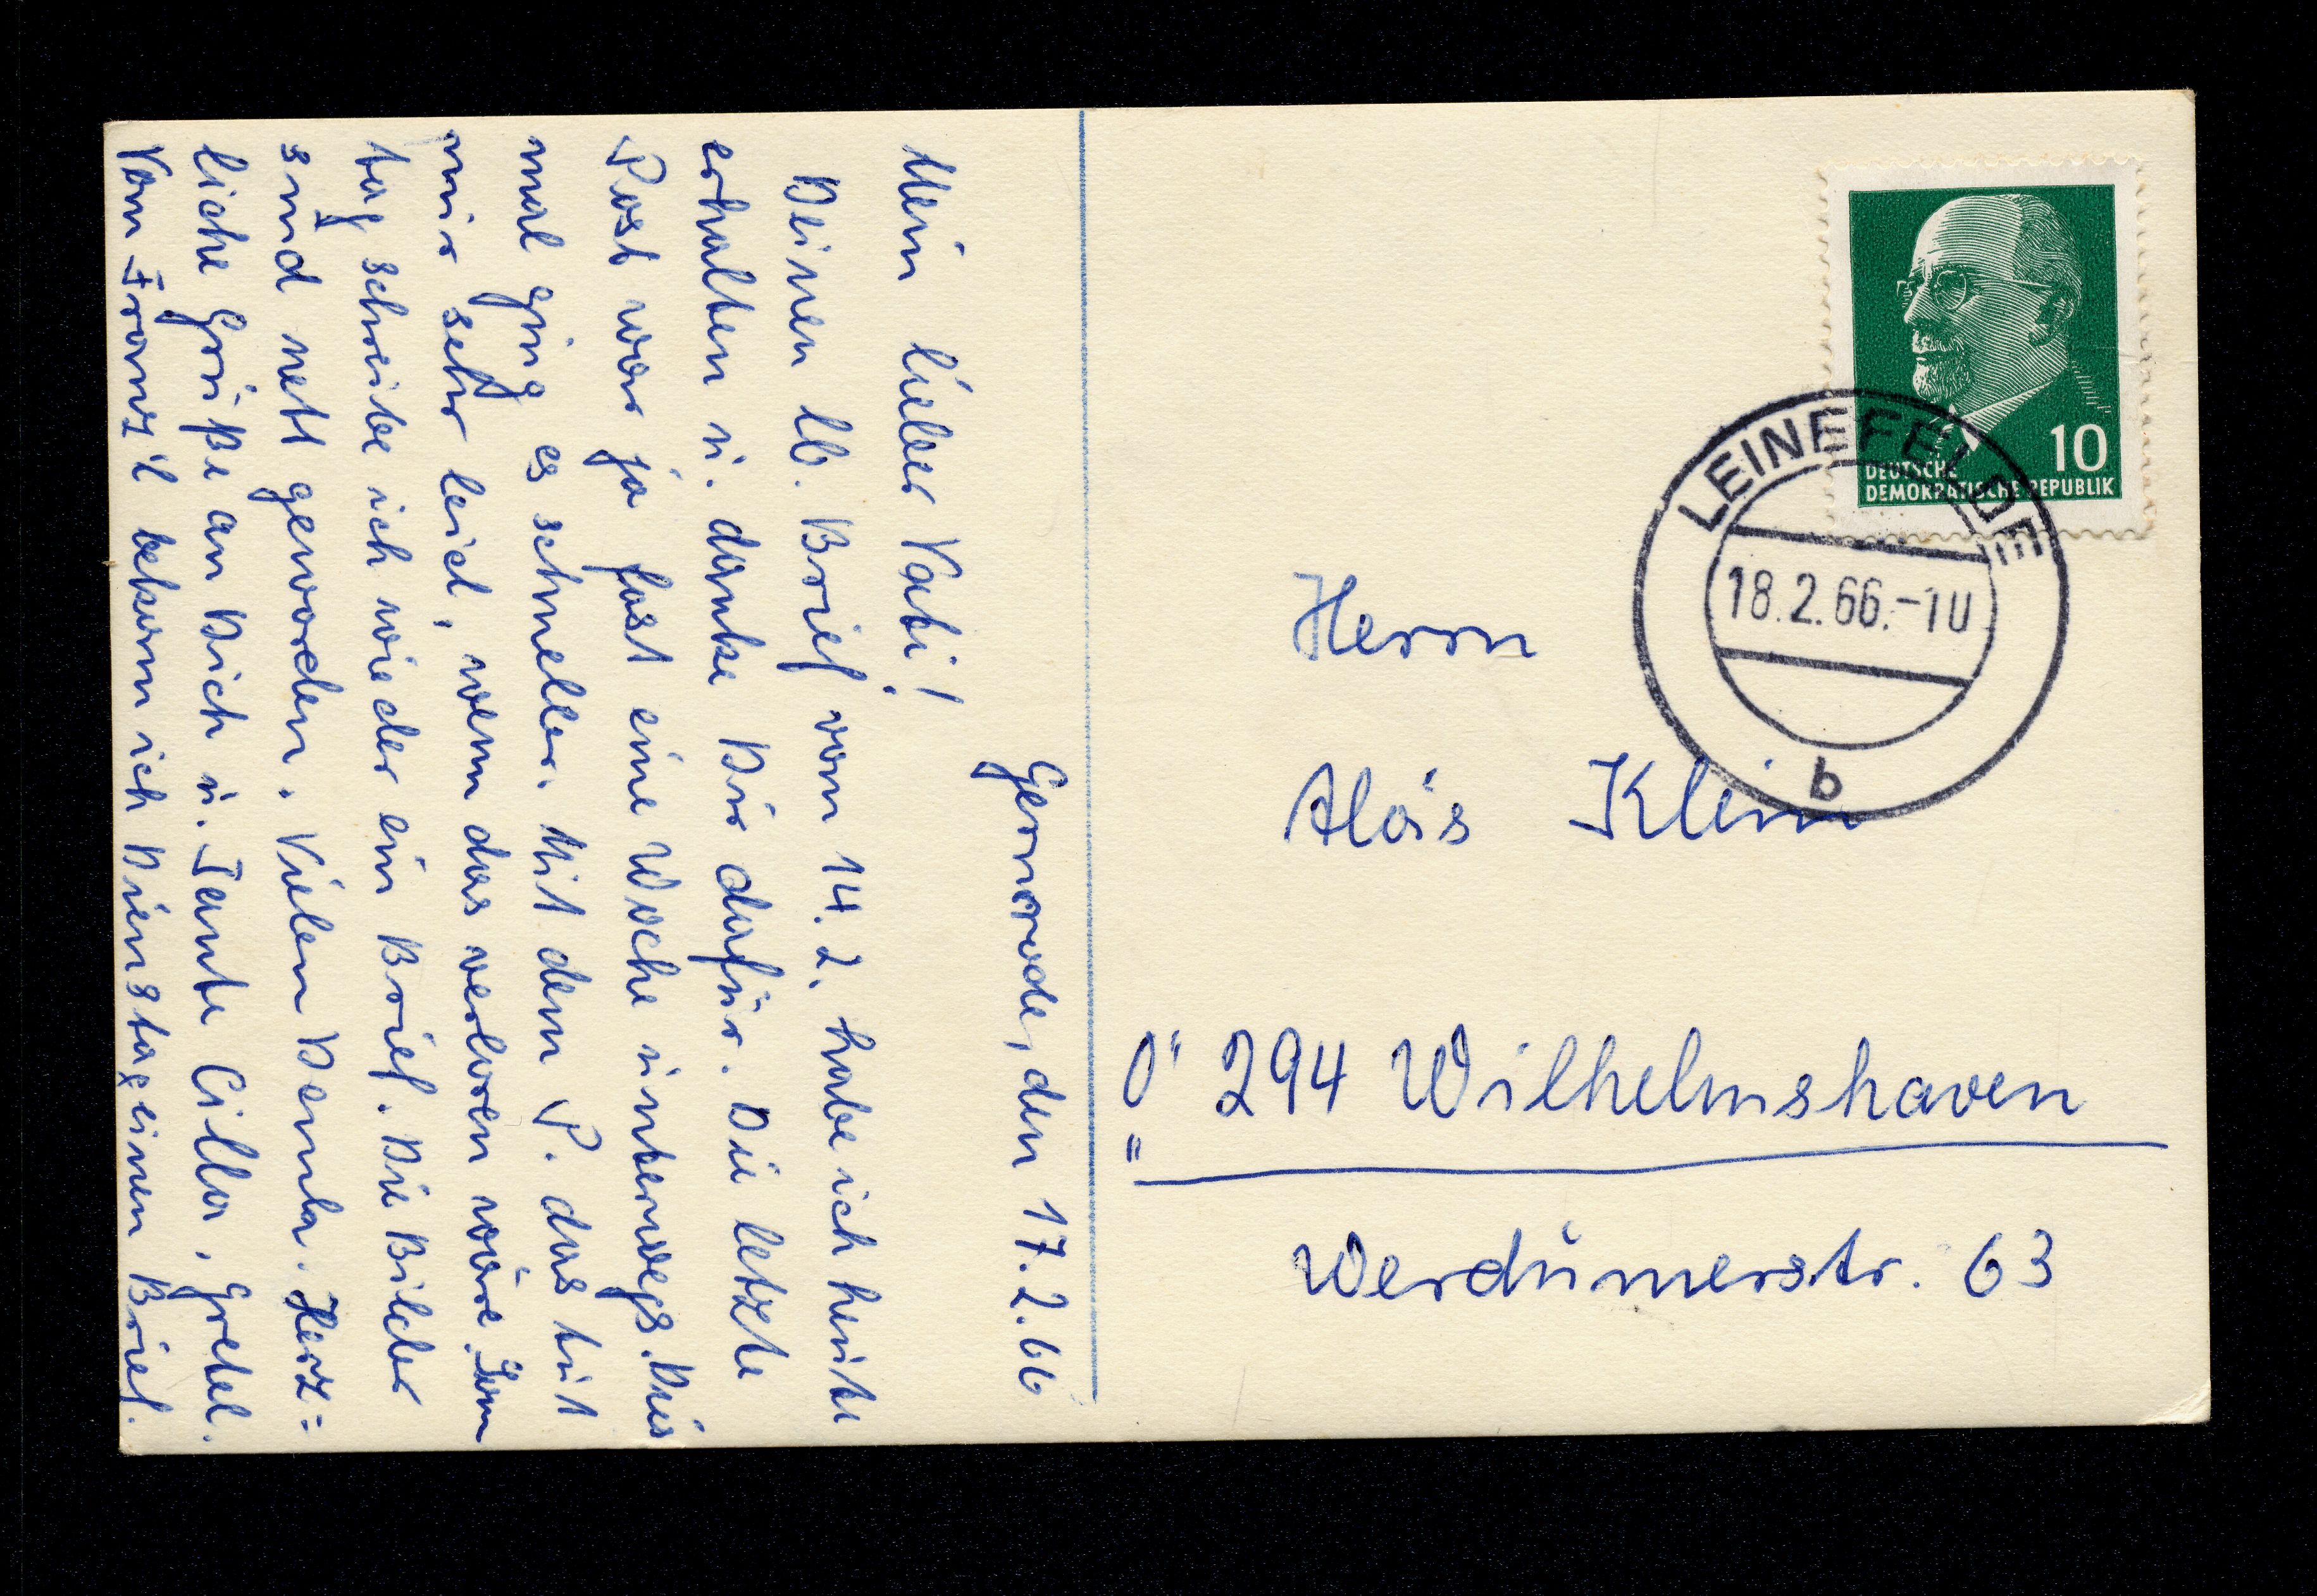 Gernrode, den 17.2.66
Mein lieber Vati!
Deinen lb. Brief vom 14.2. habe ich heute
erhalten u. danke Dir dafür. Die letzte
Post war ja fast eine Woche unterwegs. Dies
mal ging es schneller. Mit dem P. das tut
mir sehr leid, wenn das verloren wäre.
tag schreibe ich wieder ein Brief. Die Bilder
sind nett geworden. Vielen Dank. Herz=
liche Grüße an Dich u. Tante Cilla, Gretel.
Vom Franz'l bekam ich Dienstag einen Brief.
DEUTSCHE
DEMOKRATISCHE REPUBLIK
10
LEINEFELDE
18.2.66.-10
b
Herrn
Alois Klein
294 Wilhelmshaven
=
Werdumerstr. 63